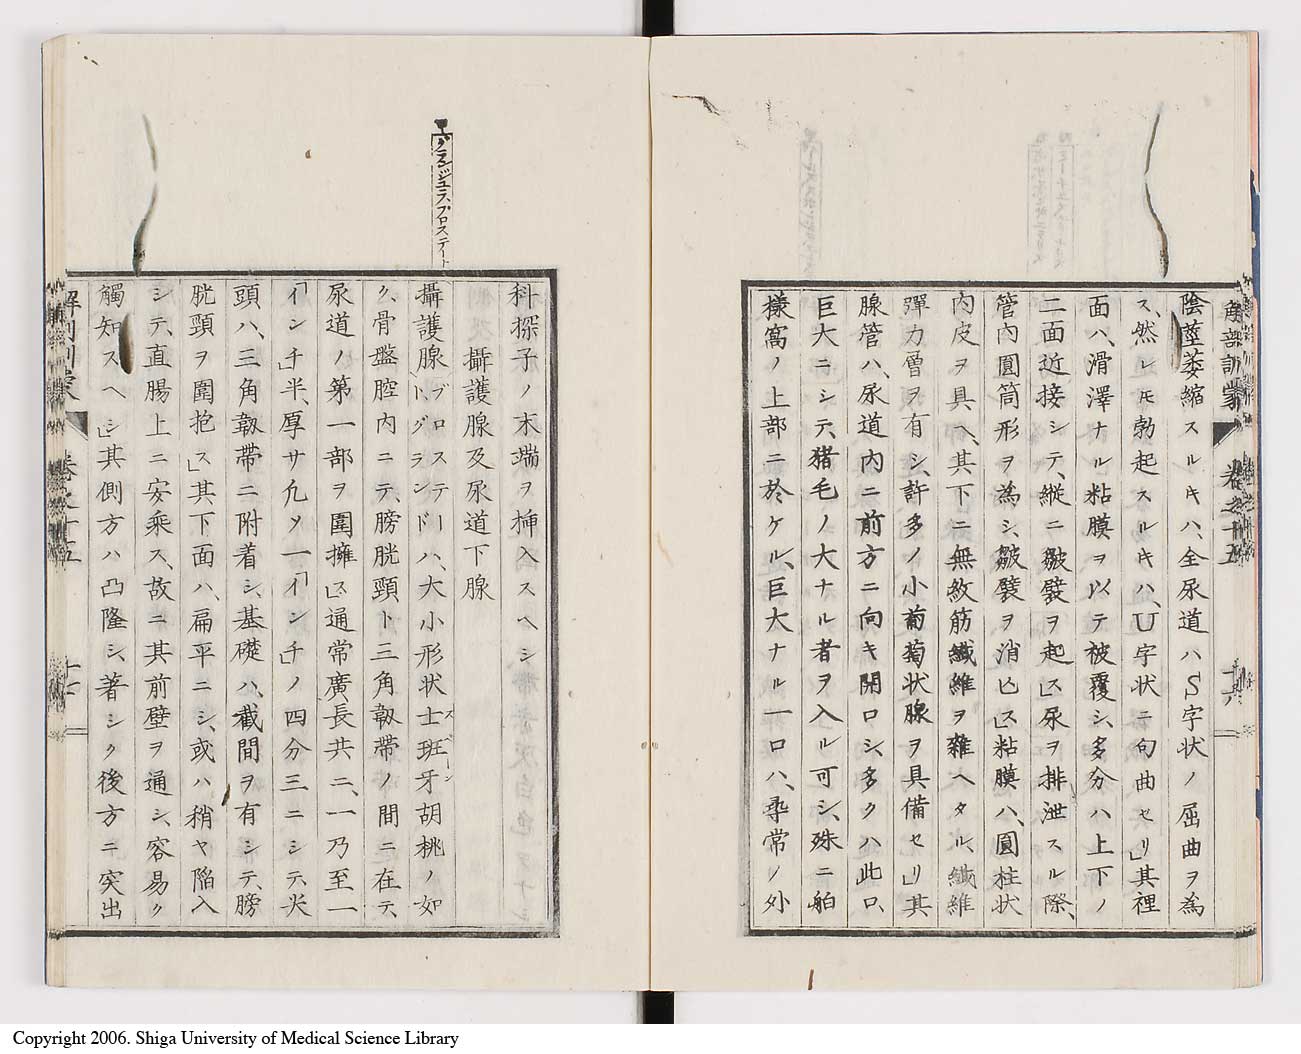 陰莖萎縮スルキハ、全尿道ハS字状ノ屈曲ヲ為
ス、然レモ勃起スルキハ、U字状ニ句曲セリ」其裡
面ハ、滑澤ナル粘膜ヲ以テ被覆シ、多分ハ上下ノ
二面近接シテ、縦ニ皺襞ヲ起ス」尿ヲ排泄スル際、
管内圓筒形ヲ為シ、皺襞ヲ消亡ス」粘膜ハ、圓柱状
内皮ヲ具ヘ、其下ニ無紋筋纖維ヲ雜ヘタル、纖維
彈力層ヲ有シ、許多ノ小葡萄状腺ヲ具備セリ」其
腺管ハ、尿道内ニ前方ニ向キ開口シ、多クハ此口、
巨大ニシテ、猪毛ノ大ナル者ヲ入ル可シ、殊ニ舶
樣窩ノ上部ニ於ケル、巨大ナル一口ハ、尋常ノ外
卷之十五
十六
科探子ノ末端ヲ挿入スヘシ
攝護腺及尿道下腺
攝護腺ト、グランドプロステーハ、大小形状士班牙胡桃ノ如
スペーン
ク、骨盤腔内ニテ、膀胱頸ト三角韌帶ノ間ニ在テ、
尿道ノ第一部ヲ圍擁ス」通常廣長共ニ、一乃至一
「インチ」半、厚サ凢ソ一「インチ」ノ四分三ニシテ、尖
頭ハ、三角韌帶ニ附着シ、基礎ハ、截間ヲ有シテ、膀
胱頸ヲ圍抱ス」其下面ハ、扁平ニシ、或ハ稍ヤ陥入
シテ、直腸上ニ安乘ス、故ニ其前壁ヲ通シ、容易ク
觸知スヘシ」其側方ハ凸隆シ、著シク後方ニ突出
Copyright 2006. Shiga University of Medical Science Library